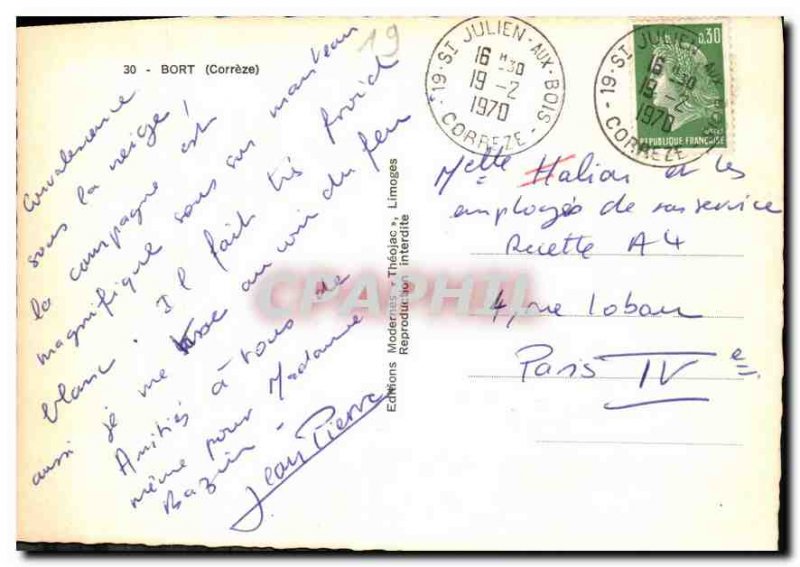 30 - BORT (Corrèze)
19
Convalescence
sous la neige!
la campagne est
magnifique sous son manteau
blanc. Il fait très froid
aussi je me au coin du feu
Amitiés à tous de
même pour Madame
Bazin -
Jean Pierre
Editions Modernes « Théojac », Limoges
Reproduction interdite
19 - ST JULIEN - AUX - BOIS -
16 H 30
19 - 2
1970
CORREZE
19 - ST JULIEN - AUX - BOIS
16 H 30
19 - 2
1970
CORREZE
0,30
REPUBLIQUE FRANÇAISE
Melle Halion et les
employés de son service
Recette A4
4, rue Lobau
Paris IVe.
CPAPHIL